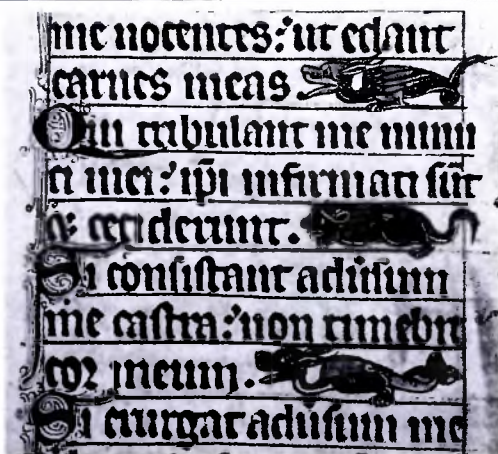 me nocentes: ut edant
carnes meas.
Qui tribulant me inimi
ci mei: ip̄i infirmati sūt
⁊ ceciderunt.
Si consistant adūsum
me castra: non timebit
cor meum.
Si exurgat adūsum me